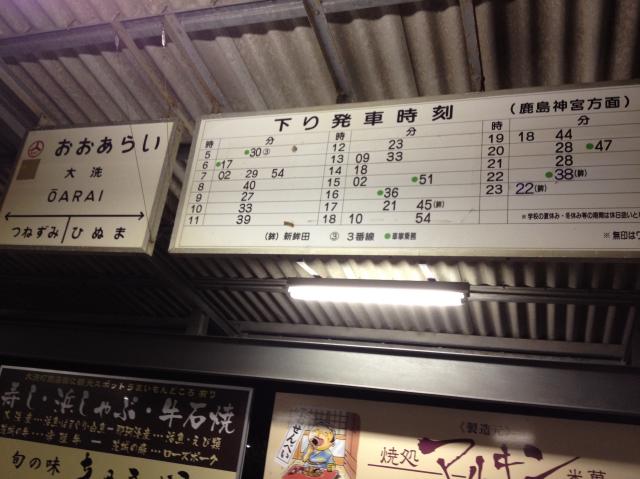 おおあらい
大洗
ŌARAI
つねずみ ひぬま
下り発車時刻 (鹿島神宮方面)
時 分
5 ●30③
6 ●17
7 02 29 54
8 40
9 27
10 33
11 39
時 分
12 23
13 09 33
14 18
15 02 ●51
16 ●36
17 21 45(鉾)
18 10 54
時 分
19 18 44
20 28 ●47
21 28
22 ●38(鉾)
23 22(鉾)
※学校の夏休み・冬休み等の期間は休日扱いと
(鉾) 新鉾田 ③ 3番線 ●車掌乗務
※無印はワ
寿し・浜しゃぶ・牛石焼
ローズポーク
旬の味
せんべい
《製造元》
焼処 マルキン 米菓